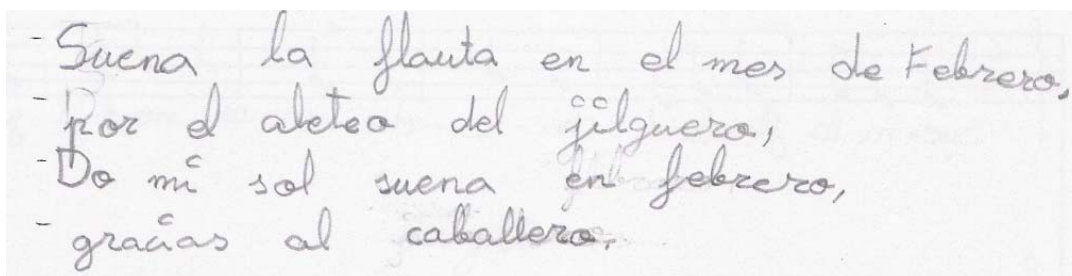 - Suena la flauta en el mes de Febrero,
- por el aleteo del jilguero,
- Do mi sol suena en febrero,
- gracias al caballero.